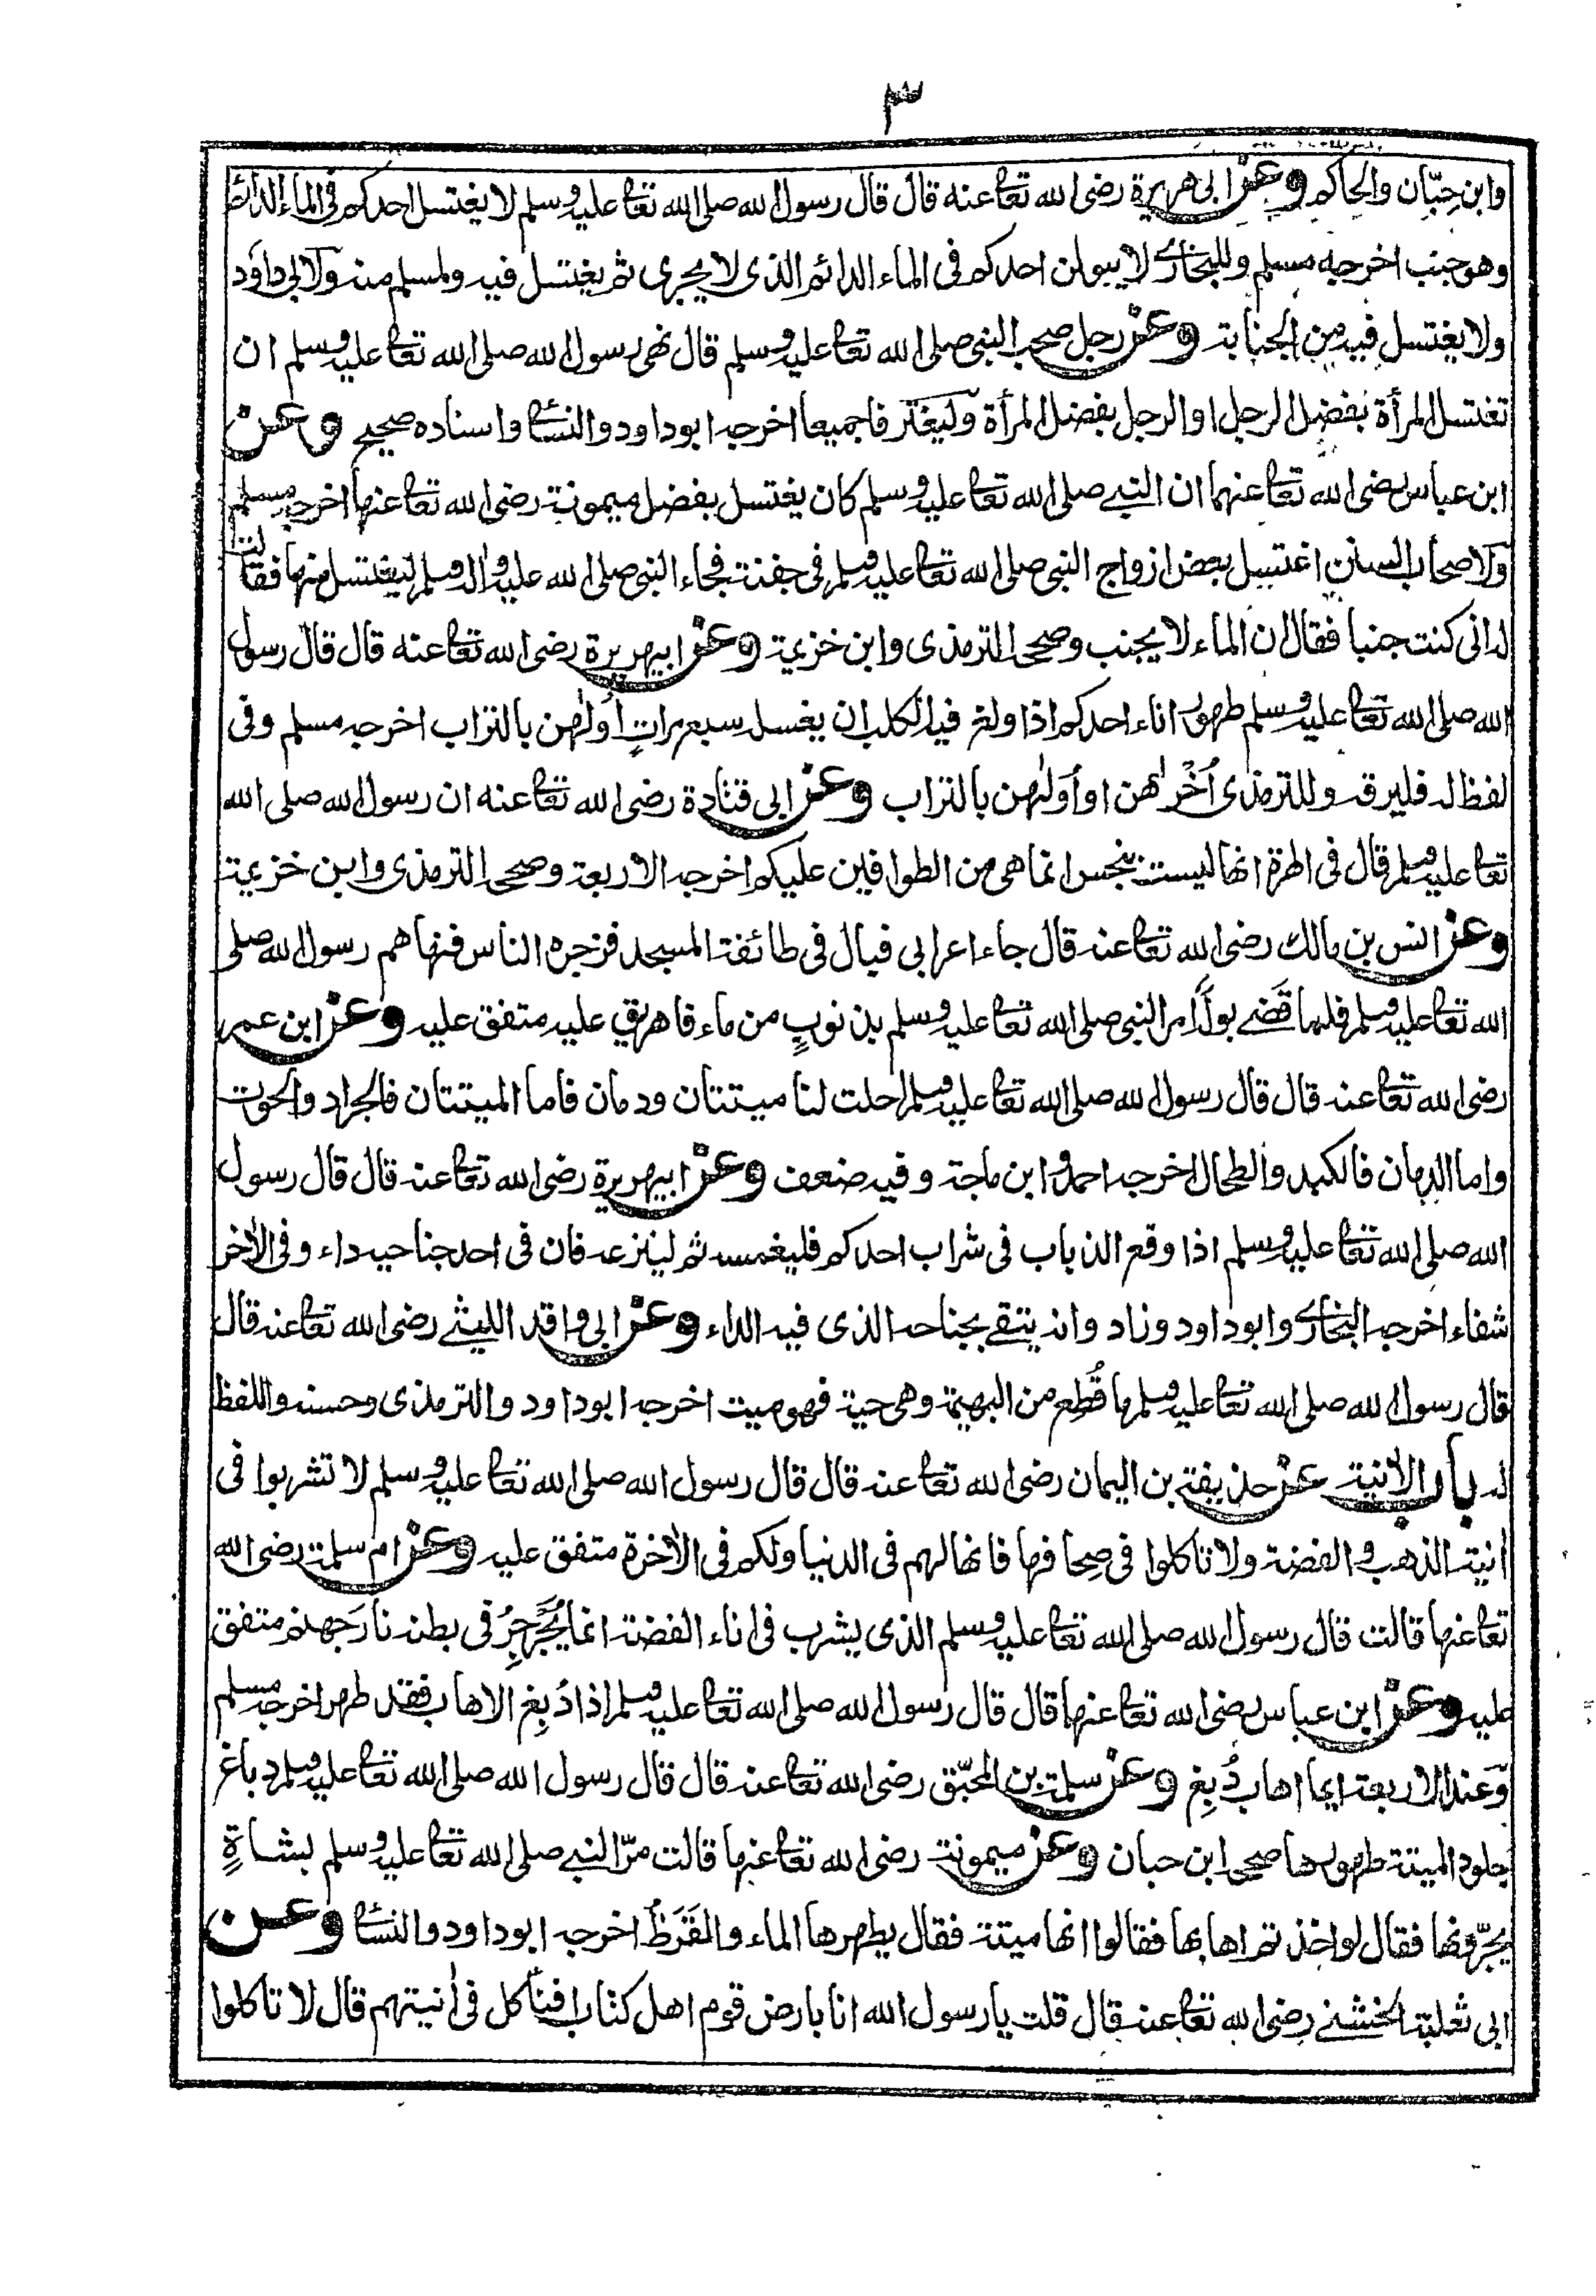 ٣
وابن حِبّان والحاكم وعن ابى هريرة رضى الله تعا عنه قال قال رسول الله صلى الله تعا عليه وسلم لا يغتسل احدكم فى الماء الدائم
وهو جنب اخرجه مسلم وللبخارے لا يبولن احدكم فى الماء الدائم الذى لا يجرى ثم يغتسل فيه ولمسلم منه ولابى داؤد
ولا يغتسل فيه من الجنابة وعن رجل صحب النبى صلى الله تعا عليه وسلم قال نهى رسول الله صلى الله تعا عليه وسلم ان
تغتسل المرأة بفضل الرجل او الرجل بفضل المرأة وليغترفا جميعا اخرجه ابو داود والنسائ واسناده صحيح وعن
ابن عباس رضى الله تعا عنهما ان النبے صلى الله تعا عليه وسلم كان يغتسل بفضل ميمونة رضى الله تعا عنها اخرجه مسلم
ولاصحاب السنن اغتسل بعض ازواج النبى صلى الله تعا عليه وسلم فى جفنة فجاء النبى صلى الله عليه واله وسلم ليغتسل منها فقالت
له انى كنت جنبا فقال ان الماء لا يجنب وصححه الترمذى وابن خزيمة وعن ابيهريرة رضى الله تعا عنه قال قال رسول
الله صلى الله تعا عليه وسلم طهور اناء احدكم اذا ولغ فيه الكلب ان يغسل سبع مراتٍ اُولٰهن بالتراب اخرجه مسلم وفى
لفظ له فليرقه وللترمذى اُخْرٰهن او اُولٰهن بالتراب وعن ابى قتادة رضى الله تعا عنه ان رسول الله صلى الله
تعا عليه وسلم قال فى الهرة انها ليست بنجس انما هى من الطوافين عليكم اخرجه الاربعة وصححه الترمذى وابن خزيمة
وعن انس بن مالك رضى الله تعا عنه قال جاء اعرابى فبال فى طائفة المسجد فزجره الناس فنهاهم رسول الله صلى
الله تعا عليه وسلم فلما قَضٰے بوله امر النبى صلى الله تعا عليه وسلم بذنوبٍ من ماء فاهريق عليه متفق عليه وعن ابن عمر
رضى الله تعا عنه قال قال رسول الله صلى الله تعا عليه وسلم احلت لنا ميتتان ودمان فاما الميتتان فالجراد والحوت
واما الدمان فالكبد والطحال اخرجه احمد و ابن ماجة وفيه ضعف وعن ابيهريرة رضى الله تعا عنه قال قال رسول
الله صلى الله تعا عليه وسلم اذا وقع الذباب فى شراب احدكم فليغمسه ثم لينزعه فان فى احد جناحيه داء وفى الاٰخر
شفاء اخرجه البخارے وابو داود وزاد وانه يتقے بجناحه الذى فيه الداء وعن ابى واقد الليثے رضى الله تعا عنه قال
قال رسول الله صلى الله تعا عليه وسلم ما قُطِع من البهيمة وهى حية فهو ميت اخرجه ابو داود والترمذى وحسنه واللفظ
له باب الاٰنية عن حذيفة بن اليمان رضى الله تعا عنه قال قال رسول الله صلى الله تعا عليه وسلم لا تشربوا فى
اٰنية الذهب و الفضة ولا تاكلوا فى صِحافها فانها لهم فى الدنيا ولكم فى الاٰخرة متفق عليه وعن ام سلمة رضى الله
تعا عنها قالت قال رسول الله صلى الله تعا عليه وسلم الذى يشرب فى اناء الفضة انما يُجَرجِرُ فى بطنه نارَ جهنم متفق
عليه وعن ابن عباس رضى الله تعا عنهما قال قال رسول الله صلى الله تعا عليه وسلم اذا دُبِغ الاهاب فقد طهر اخرجه مسلم
وعند الاربعة ايما اهاب دُبِغ وعن سلمة بن المحبّق رضى الله تعا عنه قال قال رسول الله صلى الله تعا عليه وسلم دباغ
جلود الميتة طهورها صححه ابن حبان وعن ميمونة رضى الله تعا عنها قالت مرّ النبے صلى الله تعا عليه وسلم بشاةٍ
يجرّونها فقال لو اخذتم اهابها فقالوا انها ميتة فقال يطهرها الماء والقَرَظُ اخرجه ابو داود والنسائ وعن
ابى ثعلبة الخشنے رضى الله تعا عنه قال قلت يا رسول الله انا بارض قوم اهل كتاب افناكل فى اٰنيتهم قال لا تاكلوا